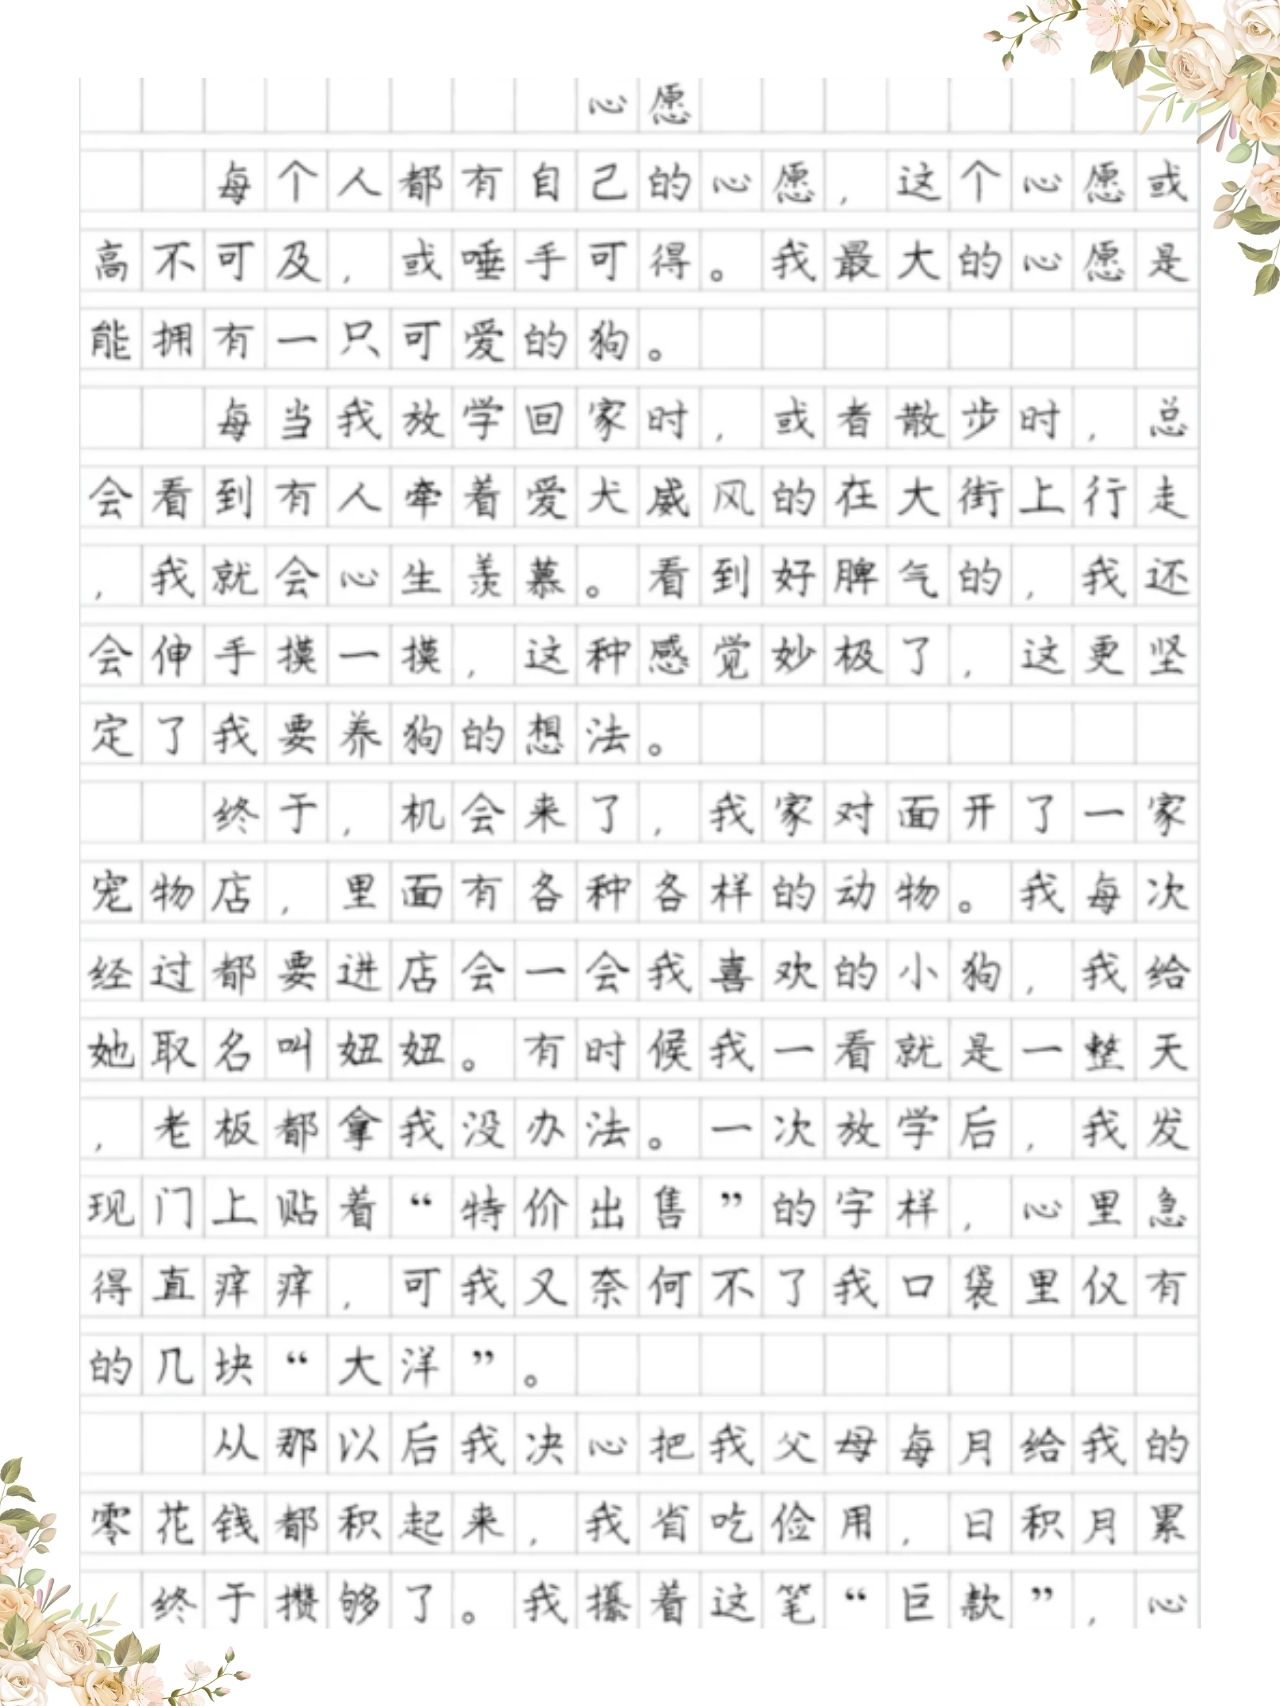 心愿
每个人都有自己的心愿，这个心愿或
高不可及，或唾手可得。我最大的心愿是
能拥有一只可爱的狗。
每当我放学回家时，或者散步时，总
会看到有人牵着爱犬威风的在大街上行走
，我就会心生羡慕。看到好脾气的，我还
会伸手摸一摸，这种感觉妙极了，这更坚
定了我要养狗的想法。
终于，机会来了，我家对面开了一家
宠物店，里面有各种各样的动物。我每次
经过都要进店会一会我喜欢的小狗，我给
她取名叫妞妞。有时候我一看就是一整天
，老板都拿我没办法。一次放学后，我发
现门上贴着“特价出售”的字样，心里急
得直痒痒，可我又奈何不了我口袋里仅有
的几块“大洋”。
从那以后我决心把我父母每月给我的
零花钱都积起来，我省吃俭用，日积月累
，终于攒够了。我攥着这笔“巨款”，心